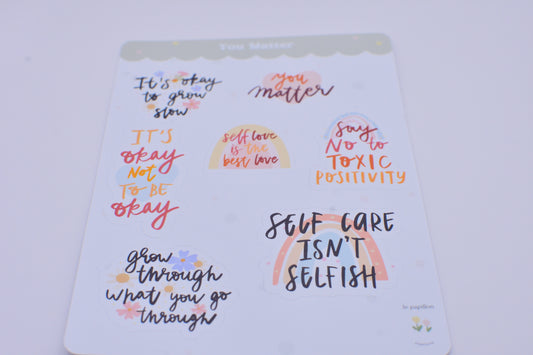 You Matter
It's okay
to grow
slow
you
matter
IT'S
okay
Not
TO BE
okay
self love
is the
best love
Say
No to
TOXIC
POSITIVITY
SELF CARE
ISN'T
SELFISH
grow
through
what you go
through